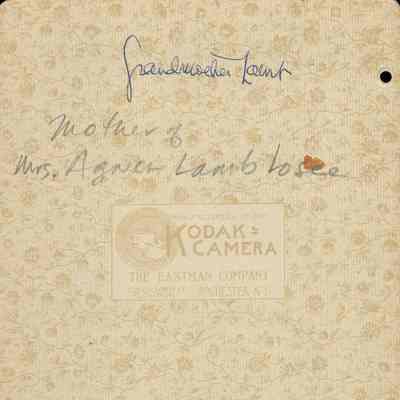 Grandmother Lamb
Mother of
Mrs. Agnes Lamb Losee
KODAK
CAMERA
THE EASTMAN COMPANY
ROCHESTER N.Y.